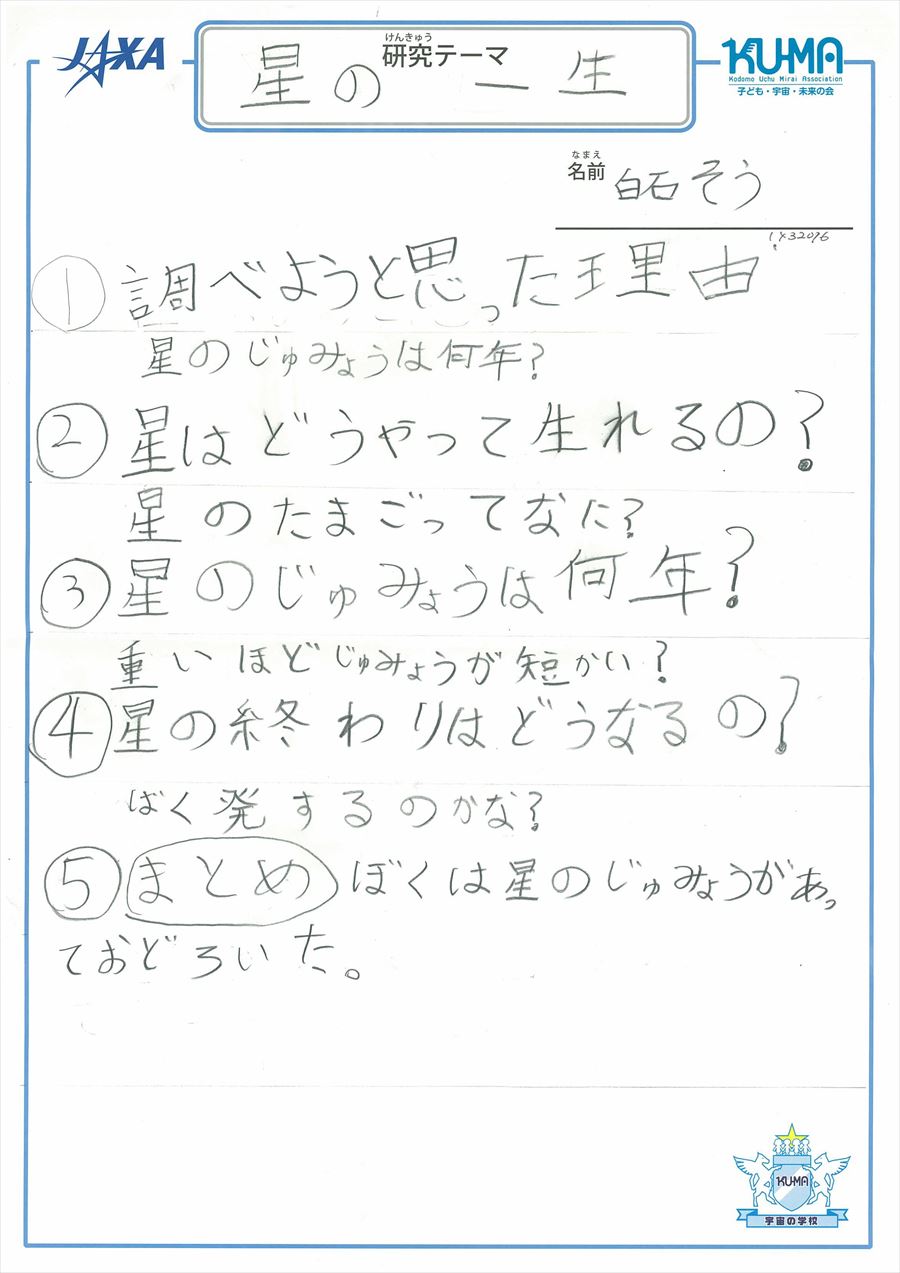 JAXA
けんきゅう
研究テーマ
星の一生
KUMA
Kodomo Uchu Mirai Association
子ども・宇宙・未来の会
なまえ
名前 白石そう
1432096
① 調べようと思った理由
星のじゅみょうは何年?
② 星はどうやって生れるの?
星のたまごってなに?
③ 星のじゅみょうは何年?
重いほどじゅみょうが短かい?
④ 星の終わりはどうなるの?
ばく発するのかな?
⑤ まとめ ぼくは星のじゅみょうがあっ
ておどろいた。
KUMA
宇宙の学校